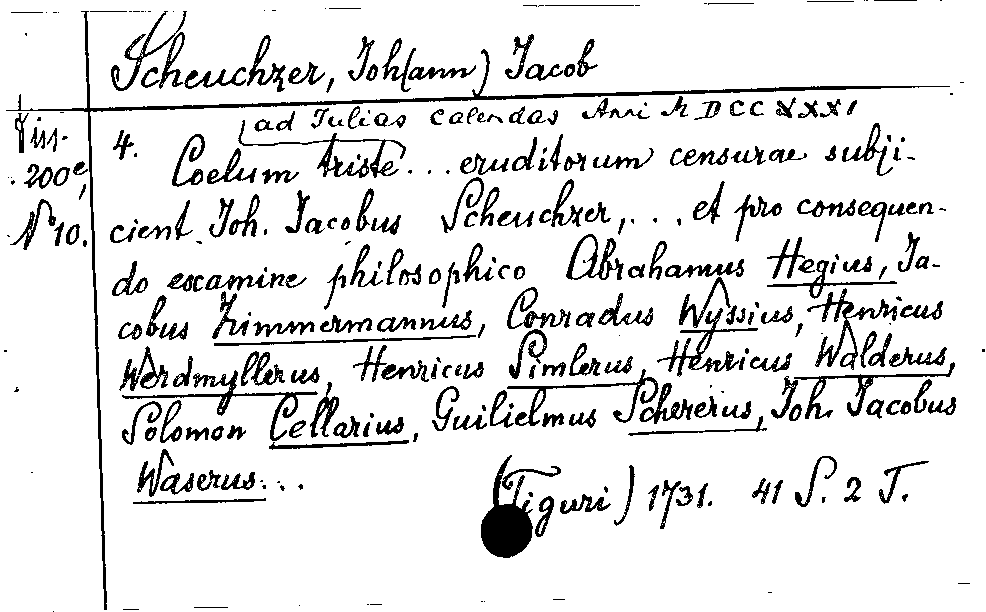 Scheuchzer, Joh(ann) Jacob
ad Julias Calendas Anni MDCCXXXI
Diss. 200e, No 10.
4. Coelum triste... eruditorum censurae subji-
cient Joh. Jacobus Scheuchzer,... et pro consequen-
do examine philosophico Abrahamus Hegius, Ja-
cobus Zimmermannus, Conradus Wyssius, Henricus
Werdmyllerus, Henricus Simlerus, Henricus Walderus,
Solomon Cellarius, Guilielmus Schererus, Joh. Jacobus
Waserus...
(Tiguri) 1731. 41 S. 2 T.